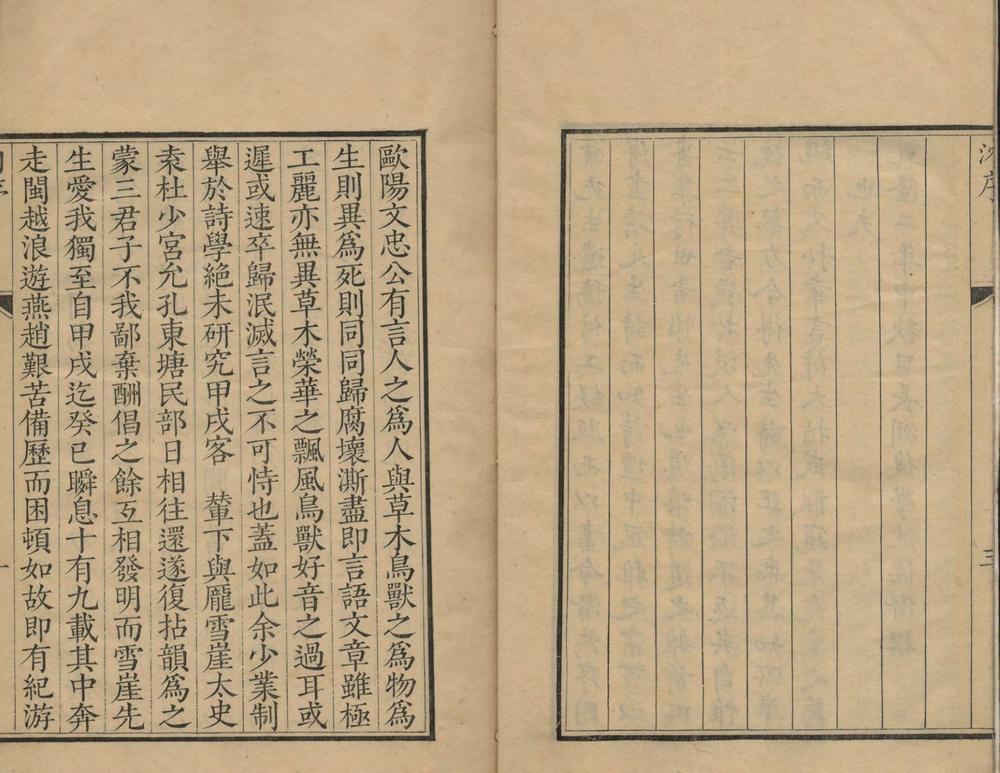 沈序
三
歐陽文忠公有言人之爲人與草木鳥獸之爲物爲
生則異爲死則同同歸腐壞澌盡即言語文章雖極
工麗亦無異草木榮華之飄風鳥獸好音之過耳或
遲或速卒歸泯滅言之不可恃也蓋如此余少業制
舉於詩學絶未研究甲戌客　輦下與龐雪崖太史
袁杜少宮允孔東塘民部日相往還遂復拈韻爲之
蒙三君子不我鄙棄酬倡之餘互相發明而雪崖先
生愛我獨至自甲戌迄癸巳瞬息十有九載其中奔
走閩越浪游燕趙艱苦備歷而困頓如故即有紀游
序
一